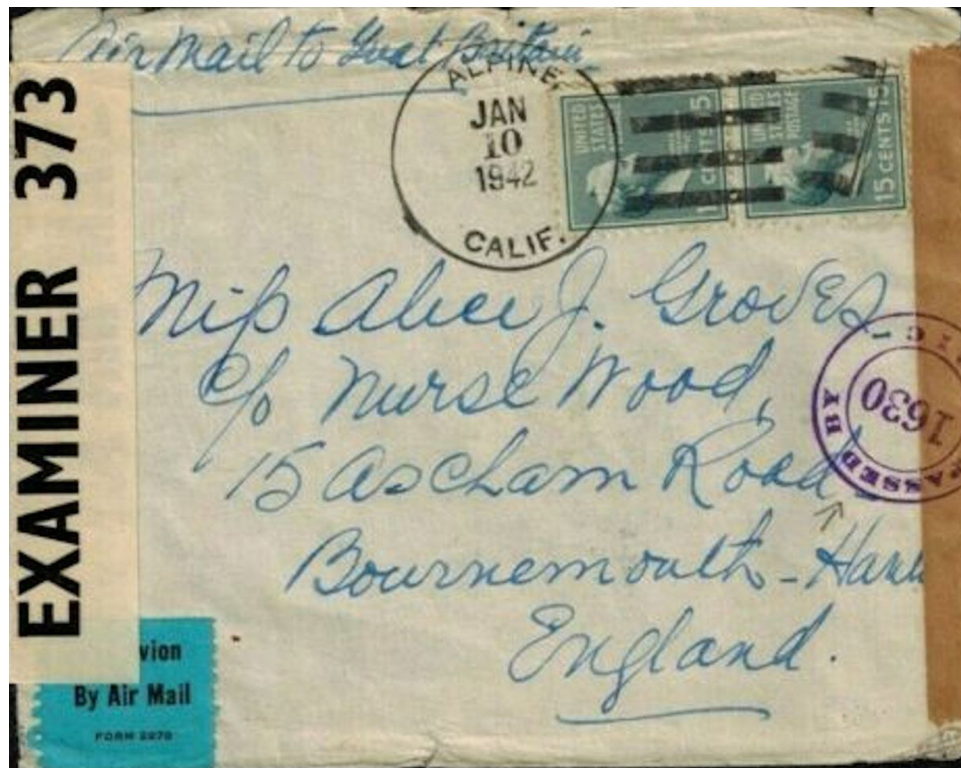 Air Mail to Great Britain
ALPINE,
JAN
10
1942
CALIF.
UNITED
STATES
15 CENTS 15
UNITED
STATES
POSTAGE
15 CENTS 15
EXAMINER 373
Miss Alice J. Groves
c/o Nurse Wood,
15 Ascham Road
Bournemouth - Han
England.
PASSED BY
1630
vion
By Air Mail
FORM 2978